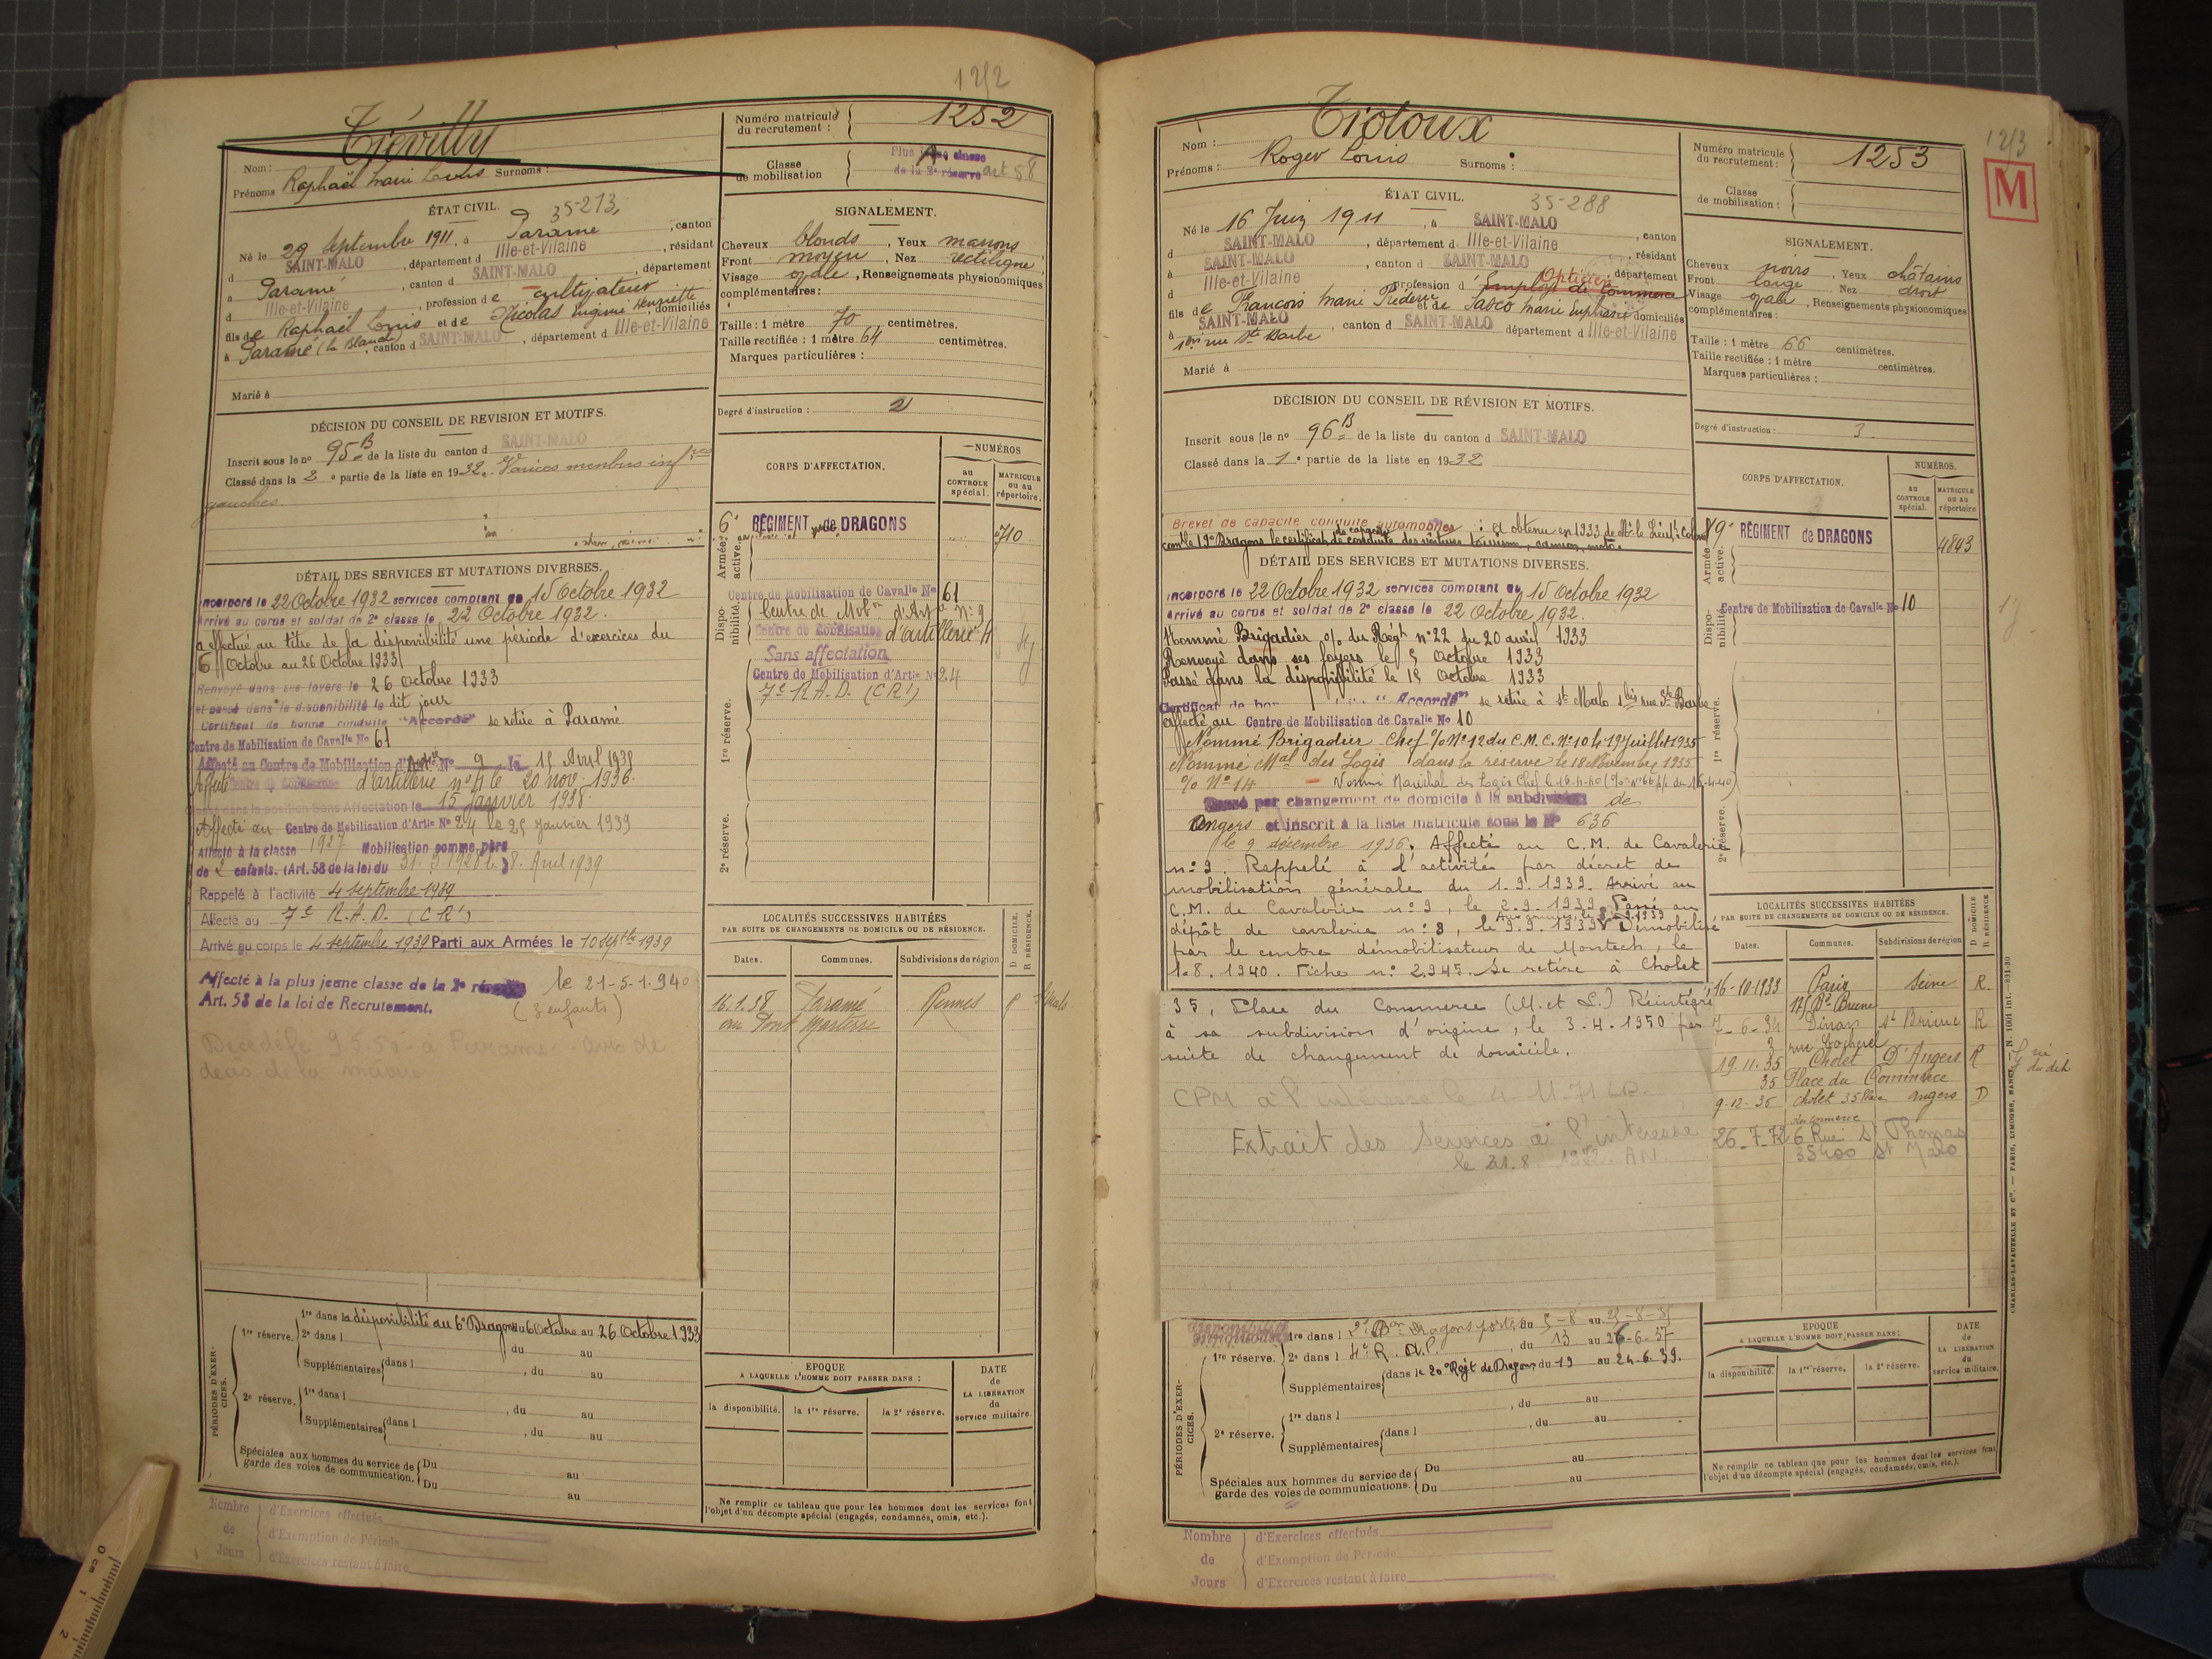 12/2
Trévilly
Nom :
Prénoms Raphaël Marie Louis Surnoms :
Numéro matricule du recrutement : 1252
Classe de mobilisation
Plus jeune classe
de la 2e réserve art 58
ÉTAT CIVIL.
35-213
Né le 29 Septembre 1911, à Paramé, canton
d SAINT-MALO, département d Ille-et-Vilaine, résidant
à Paramé, canton d SAINT-MALO, département
d Ille-et-Vilaine, profession de cultivateur
fils de Raphaël Louis et de Nicolas Eugénie Henriette, domiciliés
à Paramé (la Blanche), canton d SAINT-MALO, département d Ille-et-Vilaine
Marié à
SIGNALEMENT.
Cheveux blonds, Yeux marrons
Front moyen, Nez rectiligne
Visage ovale, Renseignements physionomiques
complémentaires :
Taille : 1 mètre 70 centimètres.
Taille rectifiée : 1 mètre 64 centimètres.
Marques particulières :
Degré d'instruction : 2
DÉCISION DU CONSEIL DE REVISION ET MOTIFS.
Inscrit sous le no 95 B de la liste du canton d SAINT-MALO
Classé dans la 2e partie de la liste en 1932. Varices membres infres
gauches.
CORPS D'AFFECTATION.
NUMÉROS
au CONTROLE spécial.
MATRICULE ou au répertoire.
Armée active.
6e RÉGIMENT de DRAGONS
710
Disponibilité.
Centre de Mobilisation de Cavalie No 61
Centre de Mobon d'Artie No 9
Centre de Mobilisation d'artillerie 4
Sans affectation
1re réserve.
Centre de Mobilisation d'Artie No 24
7e R.A.D. (CR1)
2e réserve.
DÉTAIL DES SERVICES ET MUTATIONS DIVERSES.
Incorporé le 22 Octobre 1932 services comptant du 15 Octobre 1932
Arrivé au corps et soldat de 2e classe le 22 Octobre 1932.
a effectué au titre de la disponibilité une période d'exercices du
6 Octobre au 26 Octobre 1933
Renvoyé dans ses foyers le 26 octobre 1933
et passé dans la disponibilité le dit jour
Certificat de bonne conduite "Accordé" se retire à Paramé
Centre de Mobilisation de Cavalie No 61
Affecté au Centre de Mobilisation d'Artie No 9 le 15 Avril 1935
Affecté Centre de Mobilisation d'artillerie no 4 le 20 nov. 1936.
Classé dans la position Sans Affectation le 15 Janvier 1938.
Affecté au Centre de Mobilisation d'Artie No 24 le 25 Janvier 1939
Affecté à la classe 1927 Mobilisation comme père
de 2 enfants. (Art. 58 de la loi du 31.3.1928 le 8. Avril 1939
Rappelé à l'activité 4 septembre 1939
Affecté au 7e R.A.D. (CR1)
Arrivé au corps le 4 septembre 1939 Parti aux Armées le 10 septbre 1939
Affecté à la plus jeune classe de la 2e réserve le 21-5-1940
Art. 58 de la loi de Recrutement. (3 enfants)
Décédé le 9.5.50 à Paramé avis de
décès de la mairie
LOCALITÉS SUCCESSIVES HABITÉES
PAR SUITE DE CHANGEMENTS DE DOMICILE OU DE RÉSIDENCE.
D DOMICILE.
R RÉSIDENCE.
Dates.
Communes.
Subdivisions de région
16.1.38 Paramé Rennes
au Pont
PÉRIODES D'EXERCICES.
1re réserve.
1re dans la disponibilité au 6e Dragons du 6 Octobre au 26 Octobre 1933
2e dans l , du au
Supplémentaires dans l , du au
2e réserve.
1re dans l , du au
Supplémentaires dans l , du au
Spéciales aux hommes du service de garde des voies de communication. Du au
Du au
EPOQUE
A LAQUELLE L'HOMME DOIT PASSER DANS :
la disponibilité.
la 1re réserve.
la 2e réserve.
DATE de LA LIBÉRATION du service militaire.
Ne remplir ce tableau que pour les hommes dont les services font
l'objet d'un décompte spécial (engagés, condamnés, omis, etc.).
Nombre de Jours
d'Exercices effectués
d'Exemption de Période
d'Exercices restant à faire
12/3
M
Nom : Tidoux
Prénoms : Roger Louis Surnoms :
Numéro matricule du recrutement : 1253
Classe de mobilisation :
ÉTAT CIVIL.
35-288
Né le 16 Juin 1911, à SAINT-MALO, canton
d SAINT-MALO, département d Ille-et-Vilaine, résidant
à SAINT-MALO, canton d SAINT-MALO, département
d Ille-et-Vilaine profession d Employé de Commerce Opticien
fils de François Marie Frédéric et de Marie Euphrasie domiciliés
à SAINT-MALO, canton d SAINT-MALO département d Ille-et-Vilaine
1bis rue Ste Barbe
Marié à
SIGNALEMENT.
Cheveux noirs, Yeux châtains
Front large Nez droit
Visage ovale, Renseignements physionomiques
complémentaires :
Taille : 1 mètre 66 centimètres.
Taille rectifiée : 1 mètre centimètres.
Marques particulières :
Degré d'instruction : 3.
DÉCISION DU CONSEIL DE RÉVISION ET MOTIFS.
Inscrit sous le no 96 B de la liste du canton d SAINT-MALO
Classé dans la 1e partie de la liste en 1932
Brevet de capacité conduite automobiles : a obtenu en 1933 de Mr le Lieutt Colonel
comt le 19e Dragons le certificat de capacité de conduite des voitures tourisme, camion, moto.
CORPS D'AFFECTATION.
NUMÉROS.
au CONTROLE spécial.
MATRICULE ou au répertoire
Armée active.
19e RÉGIMENT de DRAGONS
4843
Disponibilité.
Centre de Mobilisation de Cavalie No 10
1re réserve.
2e réserve.
DÉTAIL DES SERVICES ET MUTATIONS DIVERSES.
Incorporé le 22 Octobre 1932 services comptant du 15 Octobre 1932
Arrivé au corps et soldat de 2e classe le 22 Octobre 1932.
Nommé Brigadier o/o du Régt no 22 du 20 avril 1933
Renvoyé dans ses foyers le 5 Octobre 1933
Passé dans la disponibilité le 15 Octobre 1933
Certificat de bon "Accordé" se retire à St Malo 1bis rue Ste Barbe
affecté au Centre de Mobilisation de Cavalie No 10
Nommé Brigadier Chef o/o No 12 du C.M.C. No 10 le 19 Juillet 1935
Nommé Mal des Logis dans la réserve le 18 Novembre 1935
o/o No 14 - Nommé Maréchal des Logis Chef le 16-4-40
Passé par changement de domicile à la subdivision de
Angers et inscrit à la liste matricule sous le No 636
le 9 décembre 1936. Affecté au C.M. de Cavalerie
no 9. Rappelé à l'activité par décret de
mobilisation générale du 1.9.1939. Arrivé au
C.M. de Cavalerie no 9, le 2.9.1939. Passé au
dépôt de cavalerie no 9, le 9.9.1939 Démobilisé
par le centre démobilisateur de Montech, le
1.8.1940. Fiche no 2945. Se retire à Cholet
35, Place du Commerce (M. et L.) Réintégré
à sa subdivision d'origine, le 3.4.1950 par
suite de changement de domicile.
CPM à l'intéressé le 4-11-71
Extrait des Services à l'intéressé
le 21.8
LOCALITÉS SUCCESSIVES HABITÉES
PAR SUITE DE CHANGEMENTS DE DOMICILE OU DE RÉSIDENCE.
D DOMICILE
R RÉSIDENCE
Dates.
Communes.
Subdivisions de région
16-10-1933 Paris Seine R.
7-6-34 Dinan St Brieuc R
19.11.35 Cholet D'Angers R
35 Place du Commerce
9-12-36 Cholet 35 Place Angers D
du Commerce
26-7-72 6 Rue St Thomas
35400 St Malo
CHARLES-LAVAUZELLE ET Cie. — PARIS, LIMOGES, NANCY. — N. 1001 int.—831-30
PÉRIODES D'EXERCICES.
1re réserve.
1re dans l 2e Bon Dragons portés, du 5-8 au 25-8-35
2e dans l 4e R. , du 13 au 26-6-37
Supplémentaires dans le 20e Régt de Dragons du 19 au 24.6.39.
2e réserve.
1re dans l , du au
Supplémentaires dans l , du au
Spéciales aux hommes du service de garde des voies de communications. Du au
Du au
EPOQUE
A LAQUELLE L'HOMME DOIT PASSER DANS :
la disponibilité.
la 1re réserve.
la 2e réserve.
DATE de LA LIBÉRATION du service militaire.
Ne remplir ce tableau que pour les hommes dont les services font
l'objet d'un décompte spécial (engagés, condamnés, omis, etc.).
Nombre de Jours
d'Exercices effectués
d'Exemption de Période
d'Exercices restant à faire
0 cm 1 2